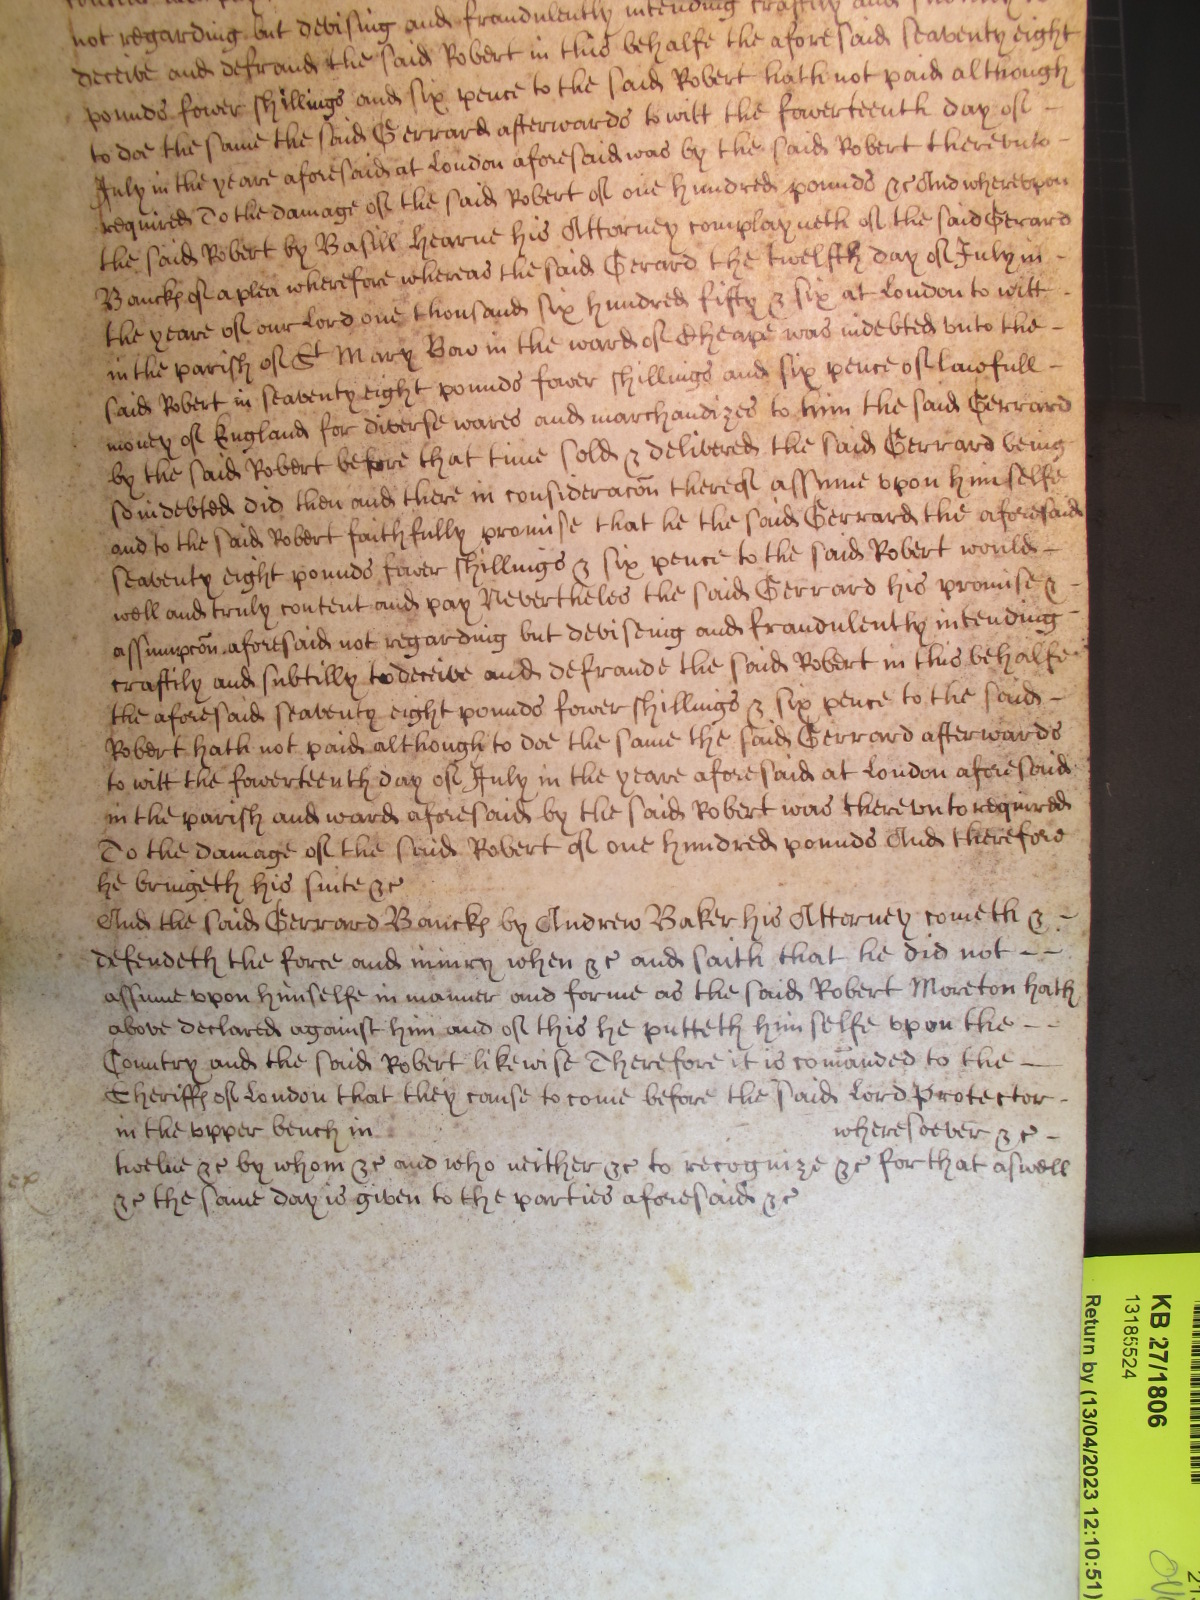 not regarding but devising and fraudulently intending craftily and
deceive and defraud the said Robert in this behalfe the aforesaid seaventy eight
pounds fower shillings and six pence to the said Robert hath not paid although
to doe the same the said Gerrard afterwards to witt the fowerteenth day of -
July in the yeare aforesaid at London aforesaid was by the said Robert therevnto -
required To the damage of the said Robert of one hundred pounds &c And wherevpon
the said Robert by Basill Hearne his Attorney complayneth of the said Gerard
Banckes of a plea wherefore whereas the said Gerard the twelfth day of July in -
the yeare of our Lord one thousand six hundred fifty & six at London to witt -
in the parish of St Mary Bow in the ward of Cheape was indebted vnto the -
said Robert in seaventy eight pounds fower shillings and six pence of lawfull -
money of England for diverse wares and marchandizes to him the said Gerrard
by the said Robert before that time sold & delivered the said Gerrard being
so indebted did then and there in consideracōn thereof assume vpon himselfe
and to the said Robert faithfully promise that he the said Gerrard the aforesaid
seaventy eight pounds fower shillings & six pence to the said Robert would -
well and truly content and pay Nevertheles the said Gerrard his promise & -
assumpcōn aforesaid not regarding but deviseing and fraudulently intending
craftily and subtilly to deceive and defraude the said Robert in this behalfe
the aforesaid seaventy eight pounds fower shillings & six pence to the said -
Robert hath not paid although to doe the same the said Gerrard afterwards
to witt the fowerteenth day of July in the yeare aforesaid at London aforesaid
in the parish and ward aforesaid by the said Robert was therevnto required
To the damage of the said Robert of one hundred pounds And therefore
he bringeth his suite &c
And the said Gerrard Banckes by Andrew Baker his Attorney cometh & -
defendeth the force and iniury when &c and saith that he did not - -
assume vpon himselfe in manner and forme as the said Robert Moreton hath
above declared against him and of this he putteth himselfe vpon the - -
Country and the said Robert likewise Therefore it is com̄anded to the -
Sheriffes of London that they cause to come before the said Lord Protector -
in the vpper bench in wheresoever &c -
twelve &c by whom &c and who neither &c to recognize &c for that aswell
&c the same day is given to the parties aforesaid &c
KB 27/1806
13185524
Return by (13/04/2023 12:10:51)